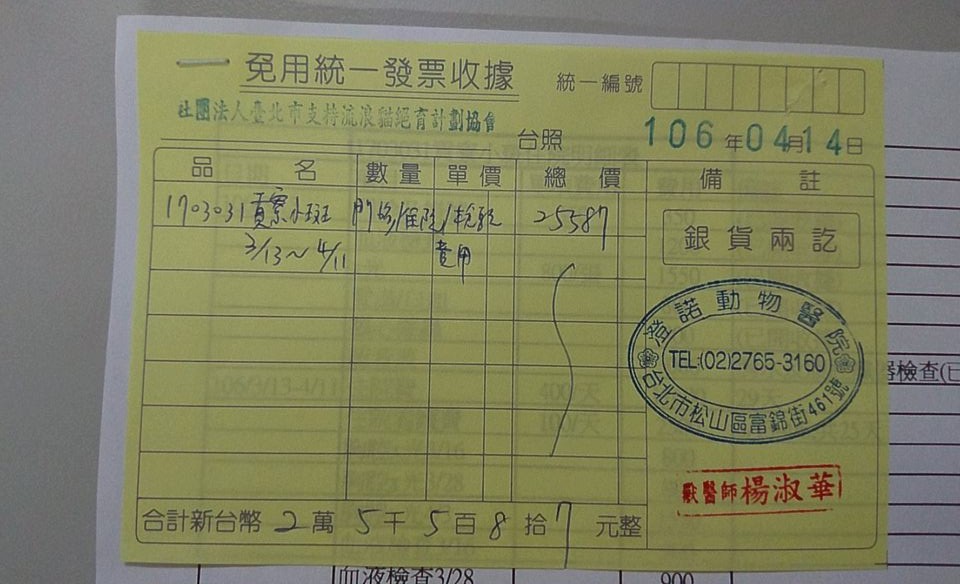 免用統一發票收據
統一編號
社團法人臺北市支持流浪貓絕育計劃協會
台照
106年04月14日
品名 數量 單價 總價 備註
1703031貢寮小斑 門診/住院/ 25587
3/13～4/11 費用
銀貨兩訖
澄諾動物醫院
TEL:(02)2765-3160
台北市松山區富錦街461號
獸醫師楊淑華
合計新台幣2萬5千5百8拾7元整
器檢查(已
血液檢查3/28 900